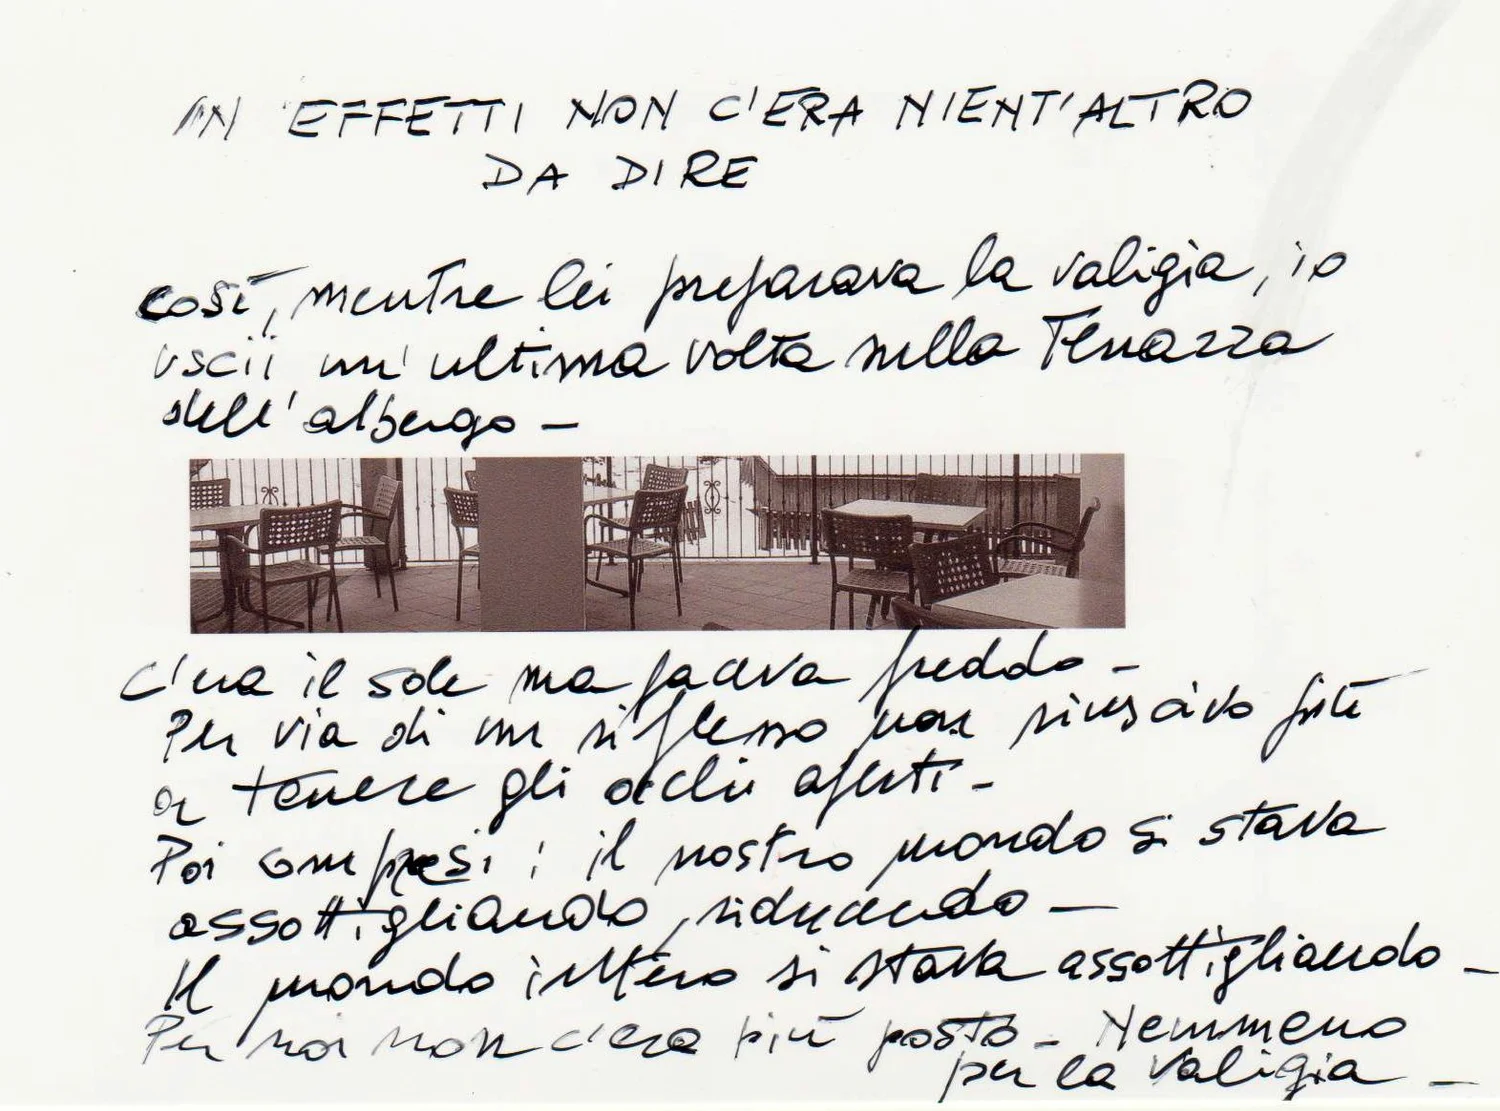 IN EFFETTI NON C'ERA NIENT'ALTRO
DA DIRE
così, mentre lei preparava la valigia, io
uscii un'ultima volta sulla Terrazza
dell'albergo –
C'era il sole ma faceva freddo –
Per via di un riflesso non riuscivo più
a tenere gli occhi aperti –
Poi compresi: il nostro mondo si stava
assottigliando, riducendo –
Il mondo intero si stava assottigliando –
Per noi non c'era più posto – Nemmeno
per la valigia –